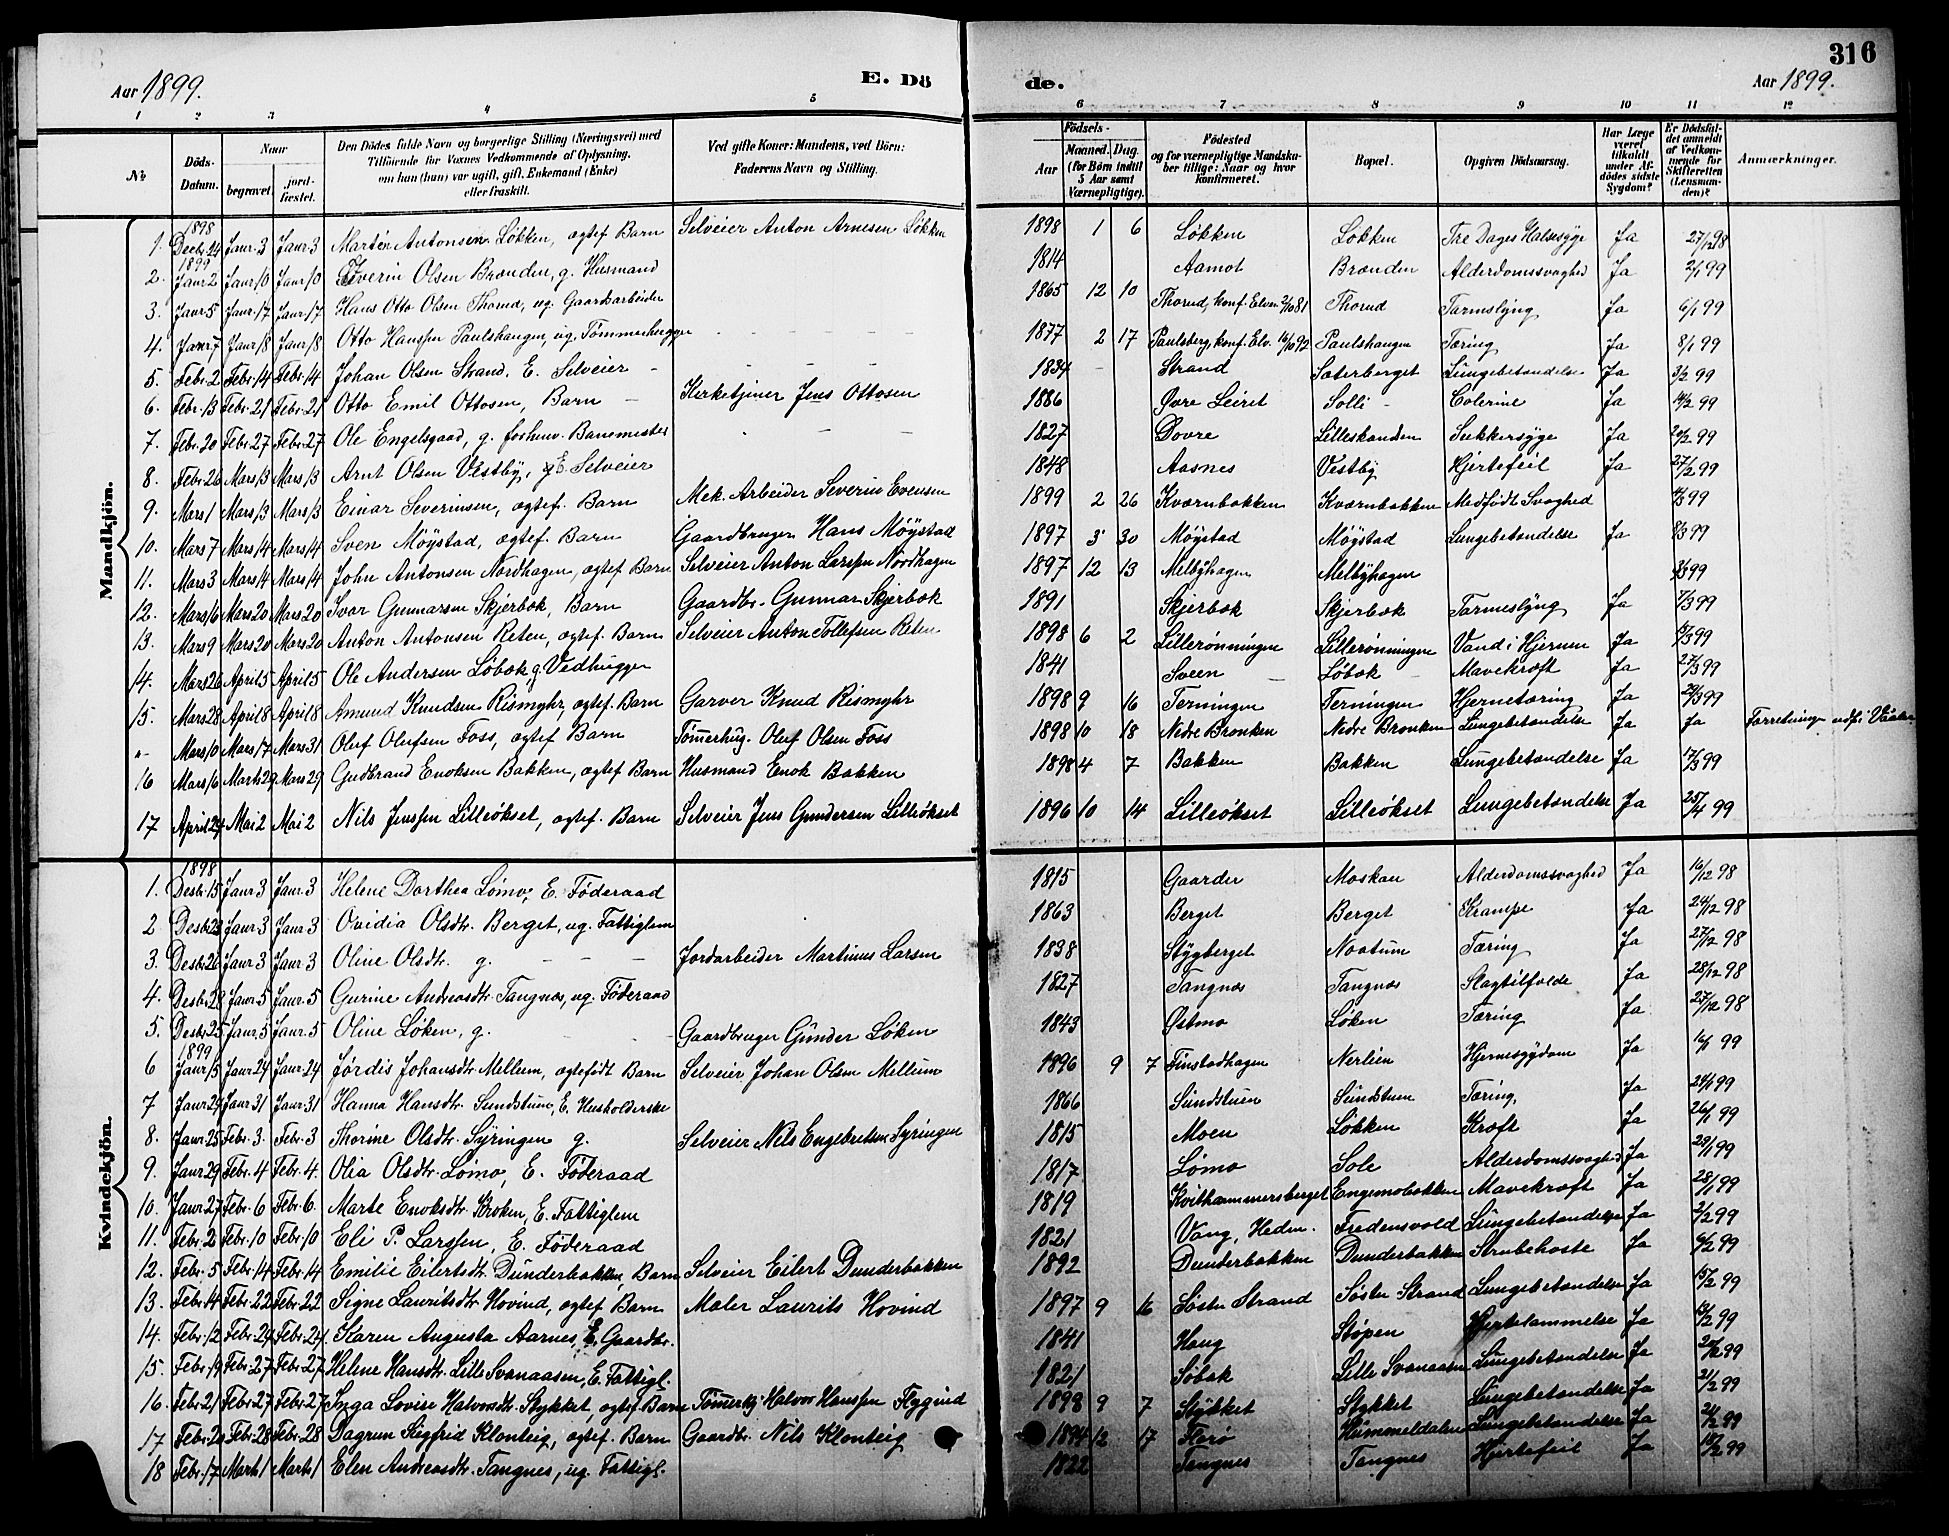 316
Aar 1899. E. Dö de. Aar 1899.
1 2 3 4 5 6 7 8 9 10 11 12
No Döds-Datum. Naar begravet. jordfæstet. Den Dödes fulde Navn og borgerlige Stilling (Næringsvei) med Tilföiende for Voxnes Vedkommende af Oplysning, om han (hun) var ugift, gift, Enkemand (Enke) eller fraskilt. Ved gifte Koner: Mandens, ved Börn: Faderens Navn og Stilling. Födsels- Aar Maaned. Dag. (for Börn indtil 5 Aar samt Værnepligtige). Födested og for værnepligtige Mandskaber tillige: Naar og hvor konfirmeret. Bopæl. Opgiven Dödsaarsag. Har Læge været tilkaldt under Afdödes sidste Sygdom? Er Dödsfaldet anmeldt af Vedkommende for Skifteretten (Lensmanden)? Anmærkninger.
Mandkjön.
1898
1. Decbr. 24 Janr. 3 Janr. 3 Martin Antonsen Løkken, ægtef. Barn Selveier Anton Arnesen Løkken 1898 1 6 Løkken Løkken Tre Dages Halssyge Ja 27/12 98
1899
2. Janr. 2 Janr. 10 Janr. 10 Iverin Olsen Brænden, g. Husmand 1814 Aamot Brænden Alderdomssvaghed Ja 2/1 99
3. Janr. 5 Janr. 17 Janr. 17 Hans Otto Olsen Thorud, ug. Gaardsarbeider 1865 12 10 Thorud, konf. Elver. 2/10 81 Thorud Tarmeslyng Ja 6/1 99
4. Janr. 7 Janr. 18 Janr. 18 Otto Hansen Paulshaugen, ug. Tømmerhugger 1877 2 17 Paulsberg, konf. Elv. 16/10 92 Paulshaugen Tæring Ja 8/1 99
5. Febr. 2 Febr. 14 Febr. 14 Johan Olsen Strand, E. Selveier 1834 Strand Sæterberget Lungebetændelse Ja 3/2 99
6. Febr. 13 Febr. 21 Febr. 21 Otto Emil Ottosen, Barn Kirketjener Jens Ottosen 1886 Øvre Leiret Solli Colerine Ja 14/2 99
7. Febr. 20 Febr. 27 Febr. 27 Ole Engelsgaard, g. forhenv. Banemester 1827 Dovre Lilleskanden Sukkersyge Ja 20/2 99
8. Febr. 26 Mars 13 Mars 13 Arnt Olsen Vestby, E. Selveier 1848 Aasnes Vestby Hjertefeil Ja 27/2 99
9. Mars 1 Mars 13 Mars 13 Einar Severinsen, ægtef. Barn Mek. Arbeider Severin Evensen 1899 2 26 Kværnbakken Kværnbakken Medfødt Svaghed
10. Mars 7 Mars 14 Mars 14 Sven Møystad, ægtef. Barn Gaardbruger Hans Møystad 1897 3 30 Møystad Møystad Lungebetændelse Ja 8/3 99
11. Mars 3 Mars 14 Mars 14 John Antonsen Nordhagen, ægtef. Barn Selveier Anton Larsen Nordhagen 1897 12 13 Melbyhagen Melbyhagen
12. Mars 16 Mars 20 Mars 20 Ivar Gunnarsen Skjerbæk, Barn Gaardbr. Gunnar Skjerbæk 1891 Skjerbæk Skjerbæk Tarmeslyng Ja
13. Mars 9 Mars 20 Mars 20 Anton Antonsen Reten, ægtef. Barn Selveier Anton Tollefsen Reten 1898 6 2 Lillerønningen Lillerønningen Vand i Hjernen Ja
14. Mars 26 April 5 April 5 Ole Andersen Løbæk, g. Vedhugger 1841 Sveen Løbæk Mavekræft Ja 27/3 99
15. Mars 28 April 8 April 8 Amund Knudsen Rismyhr, ægtef. Barn Garver Knud Rismyhr 1898 9 16 Terningen Terningen Hjernetæring Ja 29/3 99
" Mars 10 Mars 17 Mars 31 Oluf Olufsen Foss, ægtef. Barn Tömmerhug. Oluf Olsen Foss 1898 10 18 Nedre Brænken Nedre Brænken Lungebetændelse Ja Ja Forretningen udf. i Vaaler
16 Mars 16 Marts 29 Mars 29 Gudbrand Enoksen Bakken, ægtef. Barn Husmand Enok Bakken 1898 4 7 Bakken Bakken Lungebetændelse Ja 17/3 99
17 April 24 Mai 2 Mai 2 Nils Jenssen Lilleökset, ægtef. Barn Selveier Jens Gundersen Lilleökset 1896 10 14 Lilleökset Lilleökset Lungebetændelse Ja 25/4 99
Kvindekjön.
1898
1. Desbr. 15 Janr. 3 Janr. 3 Helene Dorthea Lömo, E. Föderaad 1815 Gaarder Moskau Alderdomssvaghed Ja 16/12 98
2 Desbr. 23 Janr. 3 Janr. 3 Ovidia Olsdtr. Berget, ug. Fattiglem 1863 Berget Berget Krampe Ja 24/12 98
3. Desbr. 26 Janr. 3 Janr. 3 Oline Olsdtr. g. Jordarbeider Martinus Larsen 1838 Stygberget Nootum Tæring Ja 27/12 98
4. Desbr. 28 Janr. 5 Janr. 5 Gurine Andreasdtr. Tangnæs, ug. Föderaad 1827 Tangnæs Tangnæs Slagtilfælde Ja 28/12 98
5. Desbr. 25 Janr. 5 Janr. 5 Oline Løken, g. Gaardbruger Gunder Løken 1843 Østmo Løken Tæring Ja 27/12 98
1899
6 Janr. 15 Janr. 24 Janr. 24 Jørdis Johansdtr. Mellum, ægtefödt Barn Selveier Johan Olsen Mellum 1896 9 7 Finstadhagen Nerlien Hjernesygdom Ja 16/1 99
7 Janr. 24 Janr. 31 Janr. 31 Hanna Hansdtr. Sundstuen, E. Husholderske 1866 Sundstuen Sundstuen Tæring, Ja 24/1 99
8. Janr. 25 Febr. 3. Febr. 3 Thorine Olsdtr. Syringen g. Selveier Nils Engebretsen Syringen 1815 Moen Løkken Kræft Ja 26/1 99
9. Janr. 29 Febr. 4 Febr. 4. Olia Olsdtr. Lömo, E. Föderaad 1817 Lömo Sole Alderdomssvaghed Ja 29/1 99
10. Janr. 27 Febr. 6 Febr. 6. Marte Enoksdtr. Kroken, E. Fattiglem 1819 Kvithammersberget Engemobakken Mavekræft Ja 28/1 99
11. Febr. 2 Febr. 10 Febr. 10 Eli P. Larssen, E. Föderaad 1821 Vang, Hedm. Fredensvold Lungebetændelse Ja 2/2 99
12. Febr. 5 Febr. 14 Febr. 14 Emilie Eilertsdtr. Dunderbakken, Barn Selveier Eilert Dunderbakken 1892 Dunderbakken Dunderbakken Strubehoste Ja 6/2 99
13. Febr. 14 Febr. 22 Febr. 22 Signe Lauritsdtr. Hovind, ægtef. Barn Maler Laurits Hovind 1897 9 16 Söstu Strand Söstu Strand Lungebetændelse Ja 15/2 99
14. Febr. 12 Febr. 24 Febr. 24 Karen Augusta Aarnes, E. Gaardbr. 1841 Haug Støpen Hjertelammelse Ja
15. Febr. 19 Febr. 27 Febr. 27 Helene Hansdtr. Lille Svanaasen, E. Fattigl. 1821 Söbak Lille Svanaasen Lungebetændelse Ja 20/2 99
16. Febr. 21 Febr. 27 Febr. 27 Inga Lovise Halvorsdtr. Stykket, ægtef. Barn Tömerhj. Halvor Hanssen Flygind 1898 9 7 Stykket Stykket Lungebetændelse Ja 21/2 99
17 Febr. 2 Febr. 28 Febr. 28 Dagrun Sigfrid Klonteig, ægtef. Barn Gaardbr. Nils Klonteig 1894 12 17 Florø Hummeldalen Lungebetændelse Ja
18 Febr. 17 Marts 1 Marts 1 Elen Andreasdtr. Tangnes, ug. Fattigl. 1822 Tangnes Tangnes Hjertefeil Ja 18/2 99